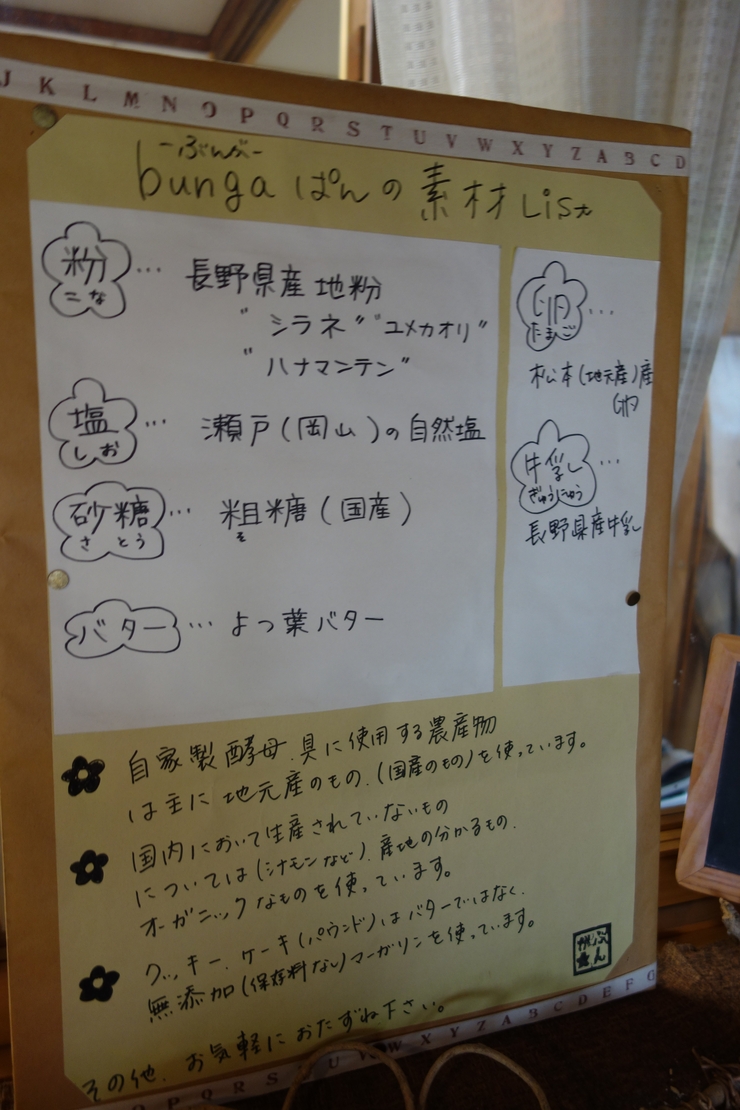 J K L M N O P Q R S T U V W X Y Z A B C D
-ぶんが-
bunga ぱんの素材List
粉 … 長野県産地粉
こな
"シラネ" "ユメカオリ"
"ハナマンテン"
塩 … 瀬戸(岡山)の自然塩
しお
砂糖 … 粗糖(国産)
さとう
そ
バター … よつ葉バター
卵 …
たまご
松本(地元産)産
卵
牛乳 …
ぎゅうにゅう
長野県産牛乳
自家製酵母、具に使用する農産物
は主に地元産のもの、(国産のもの)を使っています。
国内において生産されていないもの
については(シナモンなど)、産地の分かるもの、
オーガニックなものを使っています。
クッキー、ケーキ(パウンド)はバターではなく、
無添加(保存料なし)マーガリンを使っています。
ぶん
その他、お気軽におたずね下さい。
P Q R S T U V W X Y Z A B C D E F G